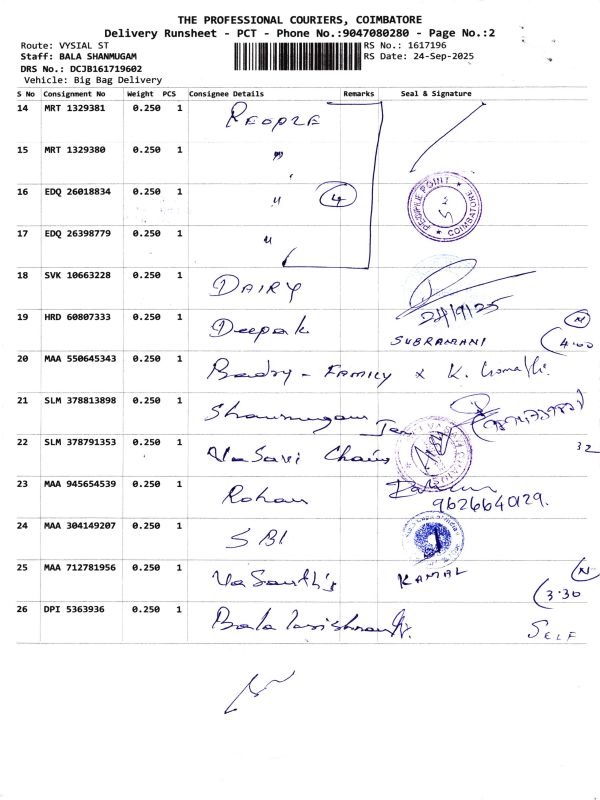 THE PROFESSIONAL COURIERS, COIMBATORE
Delivery Runsheet - PCT - Phone No.:9047080280 - Page No.:2
Route: VYSIAL ST RS No.: 1617196
Staff: BALA SHANMUGAM RS Date: 24-Sep-2025
DRS No.: DCJB161719602
Vehicle: Big Bag Delivery
S No Consignment No Weight PCS Consignee Details Remarks Seal & Signature
14 MRT 1329381 0.250 1 PEOPLE
15 MRT 1329380 0.250 1 "
16 EDQ 26018834 0.250 1 " 4 PEOPLE POINT COIMBATORE
17 EDQ 26398779 0.250 1 "
18 SVK 10663228 0.250 1 DAIRY
24/9/25
19 HRD 60807333 0.250 1 Deepak SUBRAMANI N 4.00
20 MAA 550645343 0.250 1 Badry - FAMILY x K.
21 SLM 378813898 0.250 1 Shanmugam
22 SLM 378791353 0.250 1 VaSavi Chains 32
23 MAA 945654539 0.250 1 Rohan
9626640129.
24 MAA 304149207 0.250 1 SBI
25 MAA 712781956 0.250 1 VaSanth's KAMAL N 3.30
26 DPI 5363936 0.250 1 SELF